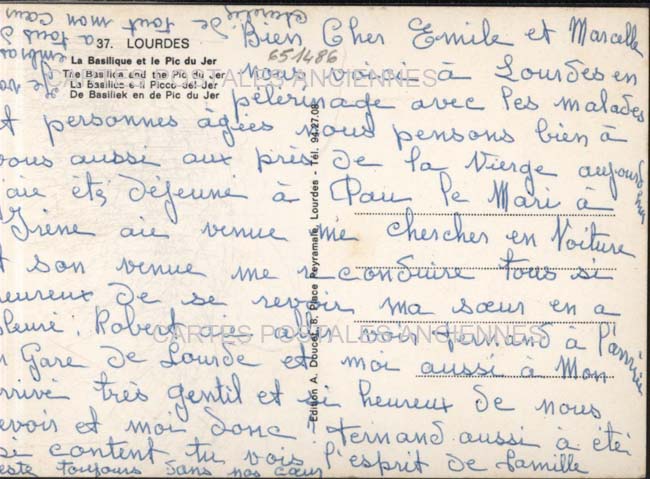 37. LOURDES
La Basilique et le Pic du Jer
The Basilica and the Pic du Jer
La Basilica e il Picco del Jer
De Basiliek en de Pic du Jer
651486
CARTES POSTALES ANCIENNES
Bien Cher Emile et Marcelle
nous voici à Lourdes en
pèlerinage avec les malades
et personnes âgées nous pensons bien à
vous aussi aux près de la Vierge aujourd'hui
j'aie été déjeuné à Pau le Mari à
Irène aie venue me chercher en Voiture
et son venue me reconduire tous si
heureux de se revoir ma sœur en a
pleuré. Robert aie allé vous Fernand à l'arrivée
CARTES POSTALES ANCIENNES
en Gare de Lourde et moi aussi à Mon
arrivé très gentil et si heureux de nous
revoir et moi donc ! Fernand aussi à été
si content tu vois l'esprit de famille
reste toujours dans nos cœur
de tout mon cœur
à tous
embras
Edition A. Doucet, 8, Place Peyramale, Lourdes - Tél. 94.27.08